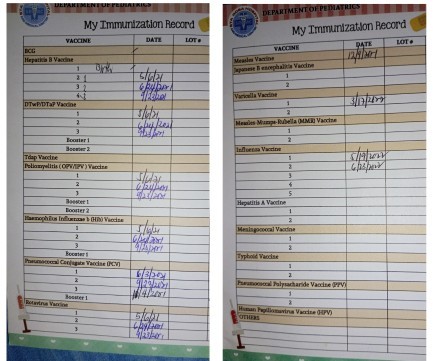 DEPARTMENT OF PEDIATRICS
My Immunization Record
VACCINE DATE LOT #
BCG
Hepatitis B Vaccine
1
2 5/6/21
3
4
DTwP/DTaP Vaccine
1 5/6/21
2
3
Booster 1
Booster 2
Tdap Vaccine
Poliomyelitis (OPV/IPV) Vaccine
1 5/6/21
2
3
Booster 1
Booster 2
Haemophilus Influenzae b (HiB) Vaccine
1
2
3
Booster 1
Pneumococcal Conjugate Vaccine (PCV)
1
2
3
Booster 1
Rotavirus Vaccine
1 5/6/21
2
3
DEPARTMENT OF PEDIATRICS
My Immunization Record
VACCINE DATE LOT #
Measles Vaccine
Japanese B encephalitis Vaccine
1
2
Varicella Vaccine
1
2
Measles-Mumps-Rubella (MMR) Vaccine
1
2
Influenza Vaccine
1 5/19/2022
2 6/23/2022
3
4
5
Hepatitis A Vaccine
1
2
Meningococcal Vaccine
1
2
Typhoid Vaccine
1
2
Pneumococcal Polysaccharide Vaccine (PPV)
1
2
Human Papillomavirus Vaccine (HPV)
OTHERS